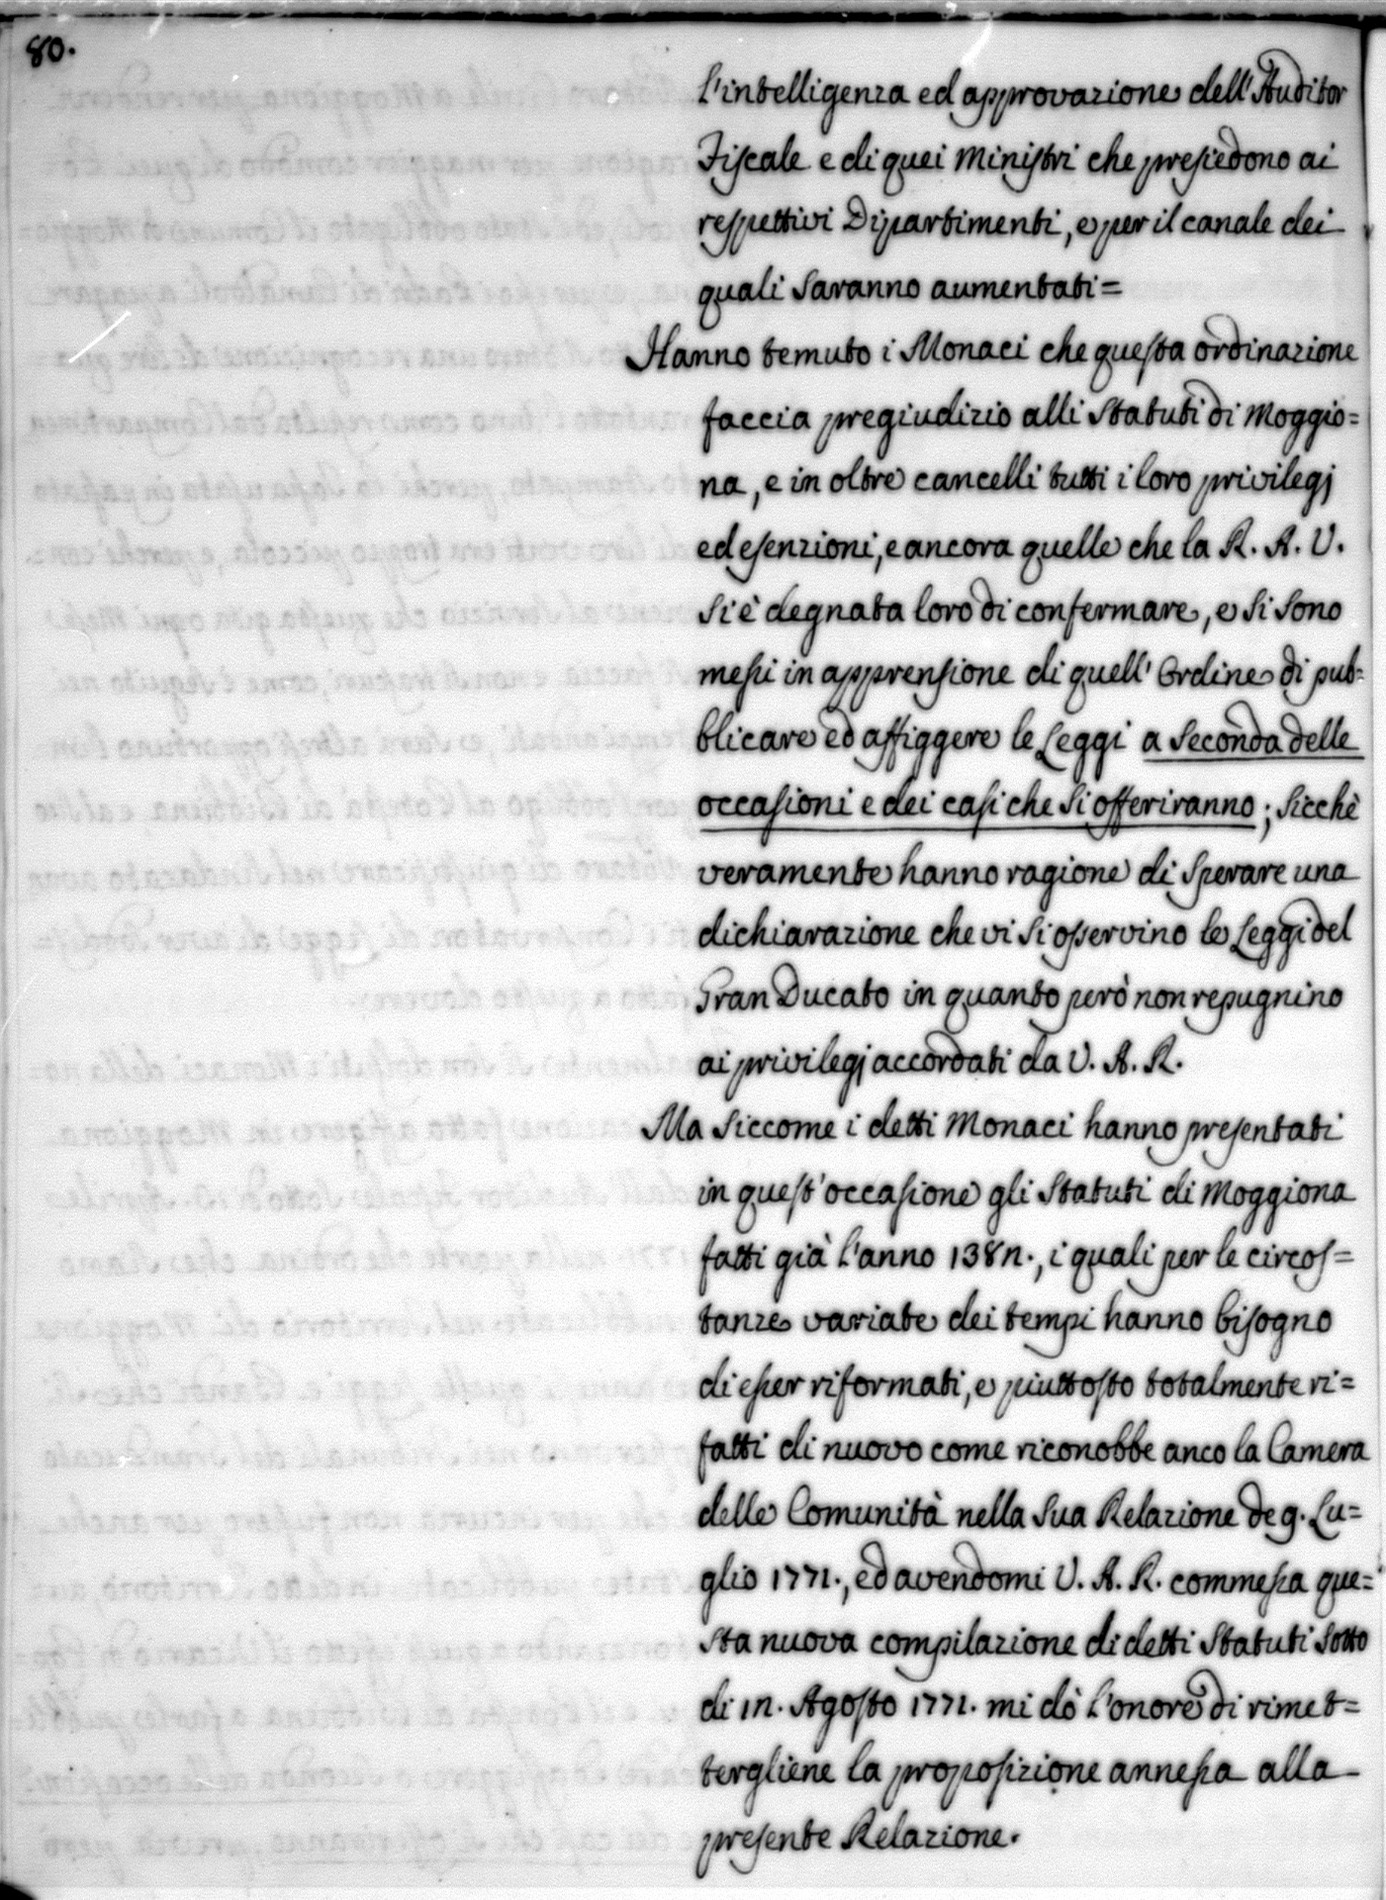 80.
l'intelligenza ed approvazione dell'Auditor
Fiscale e di quei Ministri che presiedono ai
respettivi Dipartimenti, e per il canale dei
quali Saranno aumentati=
Hanno temuto i Monaci che questa ordinazione
faccia pregiudizio alli Statuti di Moggio=
na, e in oltre cancelli tutti i loro privilegj
ed esenzioni, e ancora quelle che la R. A. V.
Si è degnata loro di confermare, e Si Sono
messi in apprensione di quell' Ordine di pub=
blicare ed affiggere le Leggi a Seconda delle
occasioni e dei casi che Si offeriranno; Sicchè
veramente hanno ragione di Sperare una
dichiarazione che vi Si osservino le Leggi del
Gran Ducato in quanto però non repugnino
ai privilegj accordati da V. A. R.
Ma Siccome i detti Monaci hanno presentati
in quest'occasione gli Statuti di Moggiona
fatti già l'anno 1384., i quali per le circos=
tanze variate dei tempi hanno bisogno
di esser riformati, e piuttosto totalmente ri=
fatti di nuovo come riconobbe anco la Camera
delle Comunità nella Sua Relazione de 9. Lu=
glio 1771., ed avendomi V. A. R. commessa que=
sta nuova compilazione di detti Statuti Sotto
di 14. Agosto 1771. mi dò l'onore di rimet=
tergliene la proposizione annessa alla
presente Relazione.